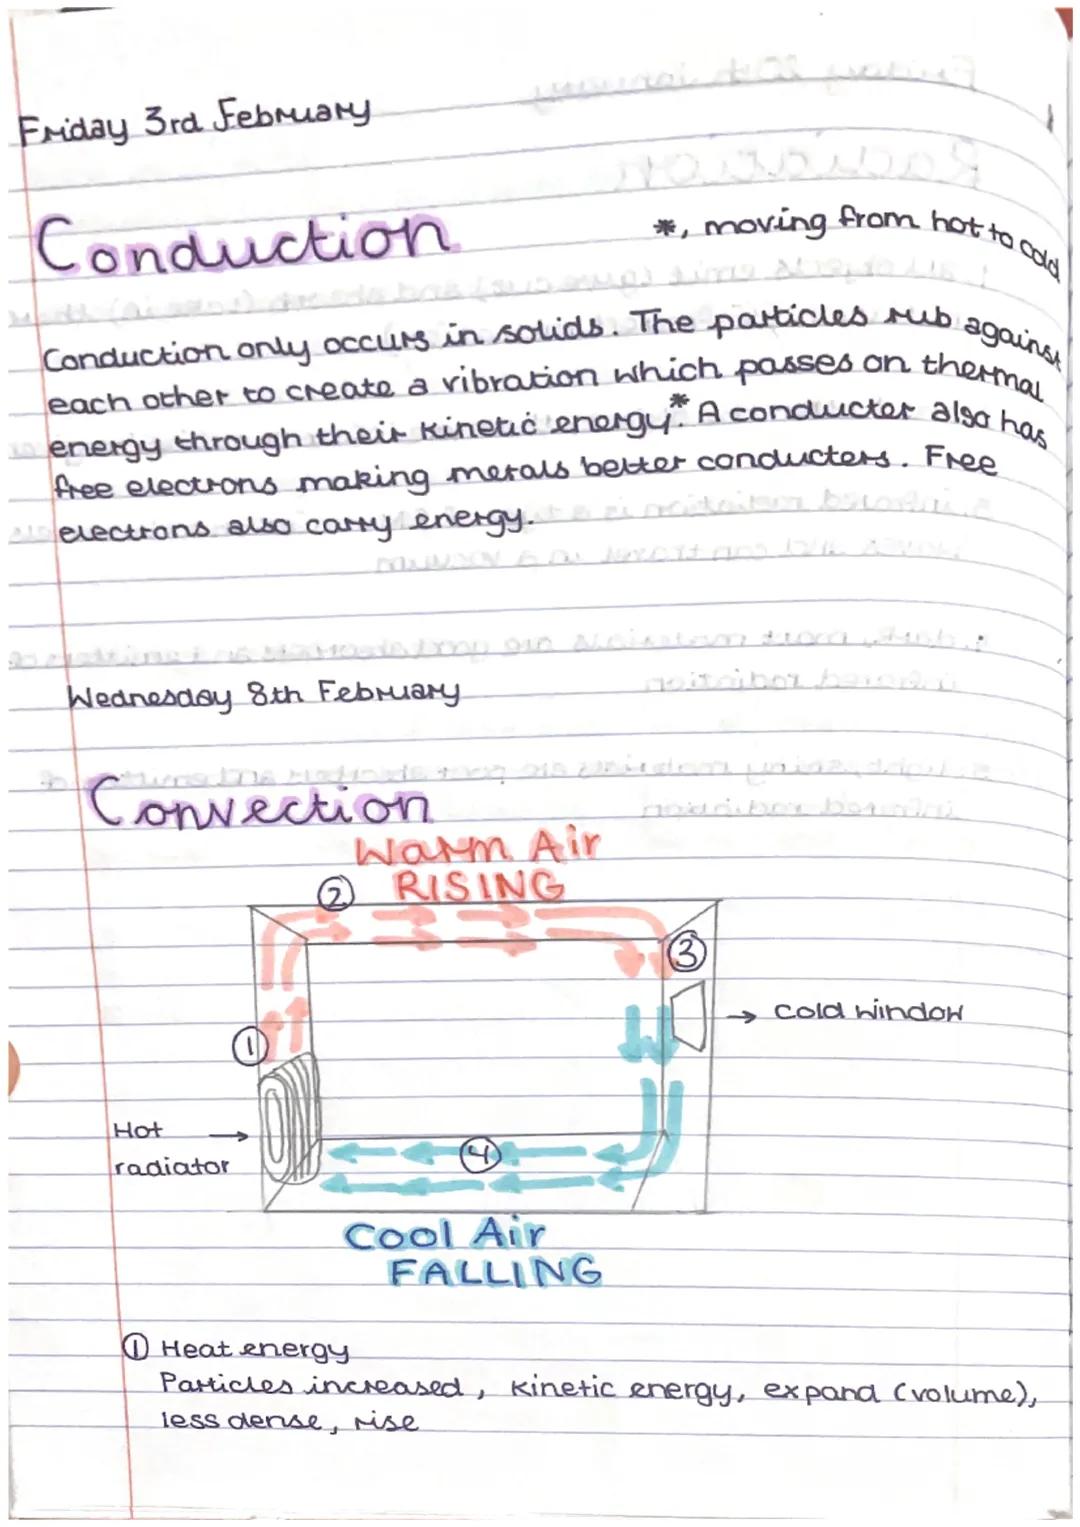 Friday 3rd February
Conduction
*, moving from hot to cold
Conduction only occurs in solids. The particles rub against
each other to create a vibration which passes on thermal
energy through their kinetic energy.* A conducter also has
free electrons making metals better conducters. Free
electrons also carry energy.
Wednesday 8th February
Convection
Warm Air
RISING
2
3
→ cold window
1
Hot →
radiator
4
Cool Air
FALLING
① Heat energy
Particles increased, kinetic energy, expand (volume),
less dense, rise